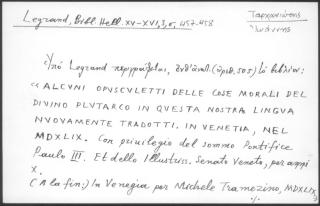 Legrand, Bibl. Hell. XV-XVI, 3, σ, 457-458
Ταρχανιώτης
Ἰωάννης
Ὑπό Legrand περιγράφεται, (ἀριθ. 505) τό βιβλίον:
"ALCVNI OPVSCVLETTI DELLE COSE MORALI DEL
DIVINO PLUTARCO IN QUESTA NOSTRA LINGUA
NVOVAMENTE TRADOTTI. IN VENETIA, NEL
MDXLIX. Con privilegio del sommo Pontifice
Paulo III. Et dello Illustriss. Senato Veneto, per anni
X.
(A la fin:) In Venegia per Michele Tramezino, MDXLIX
./.